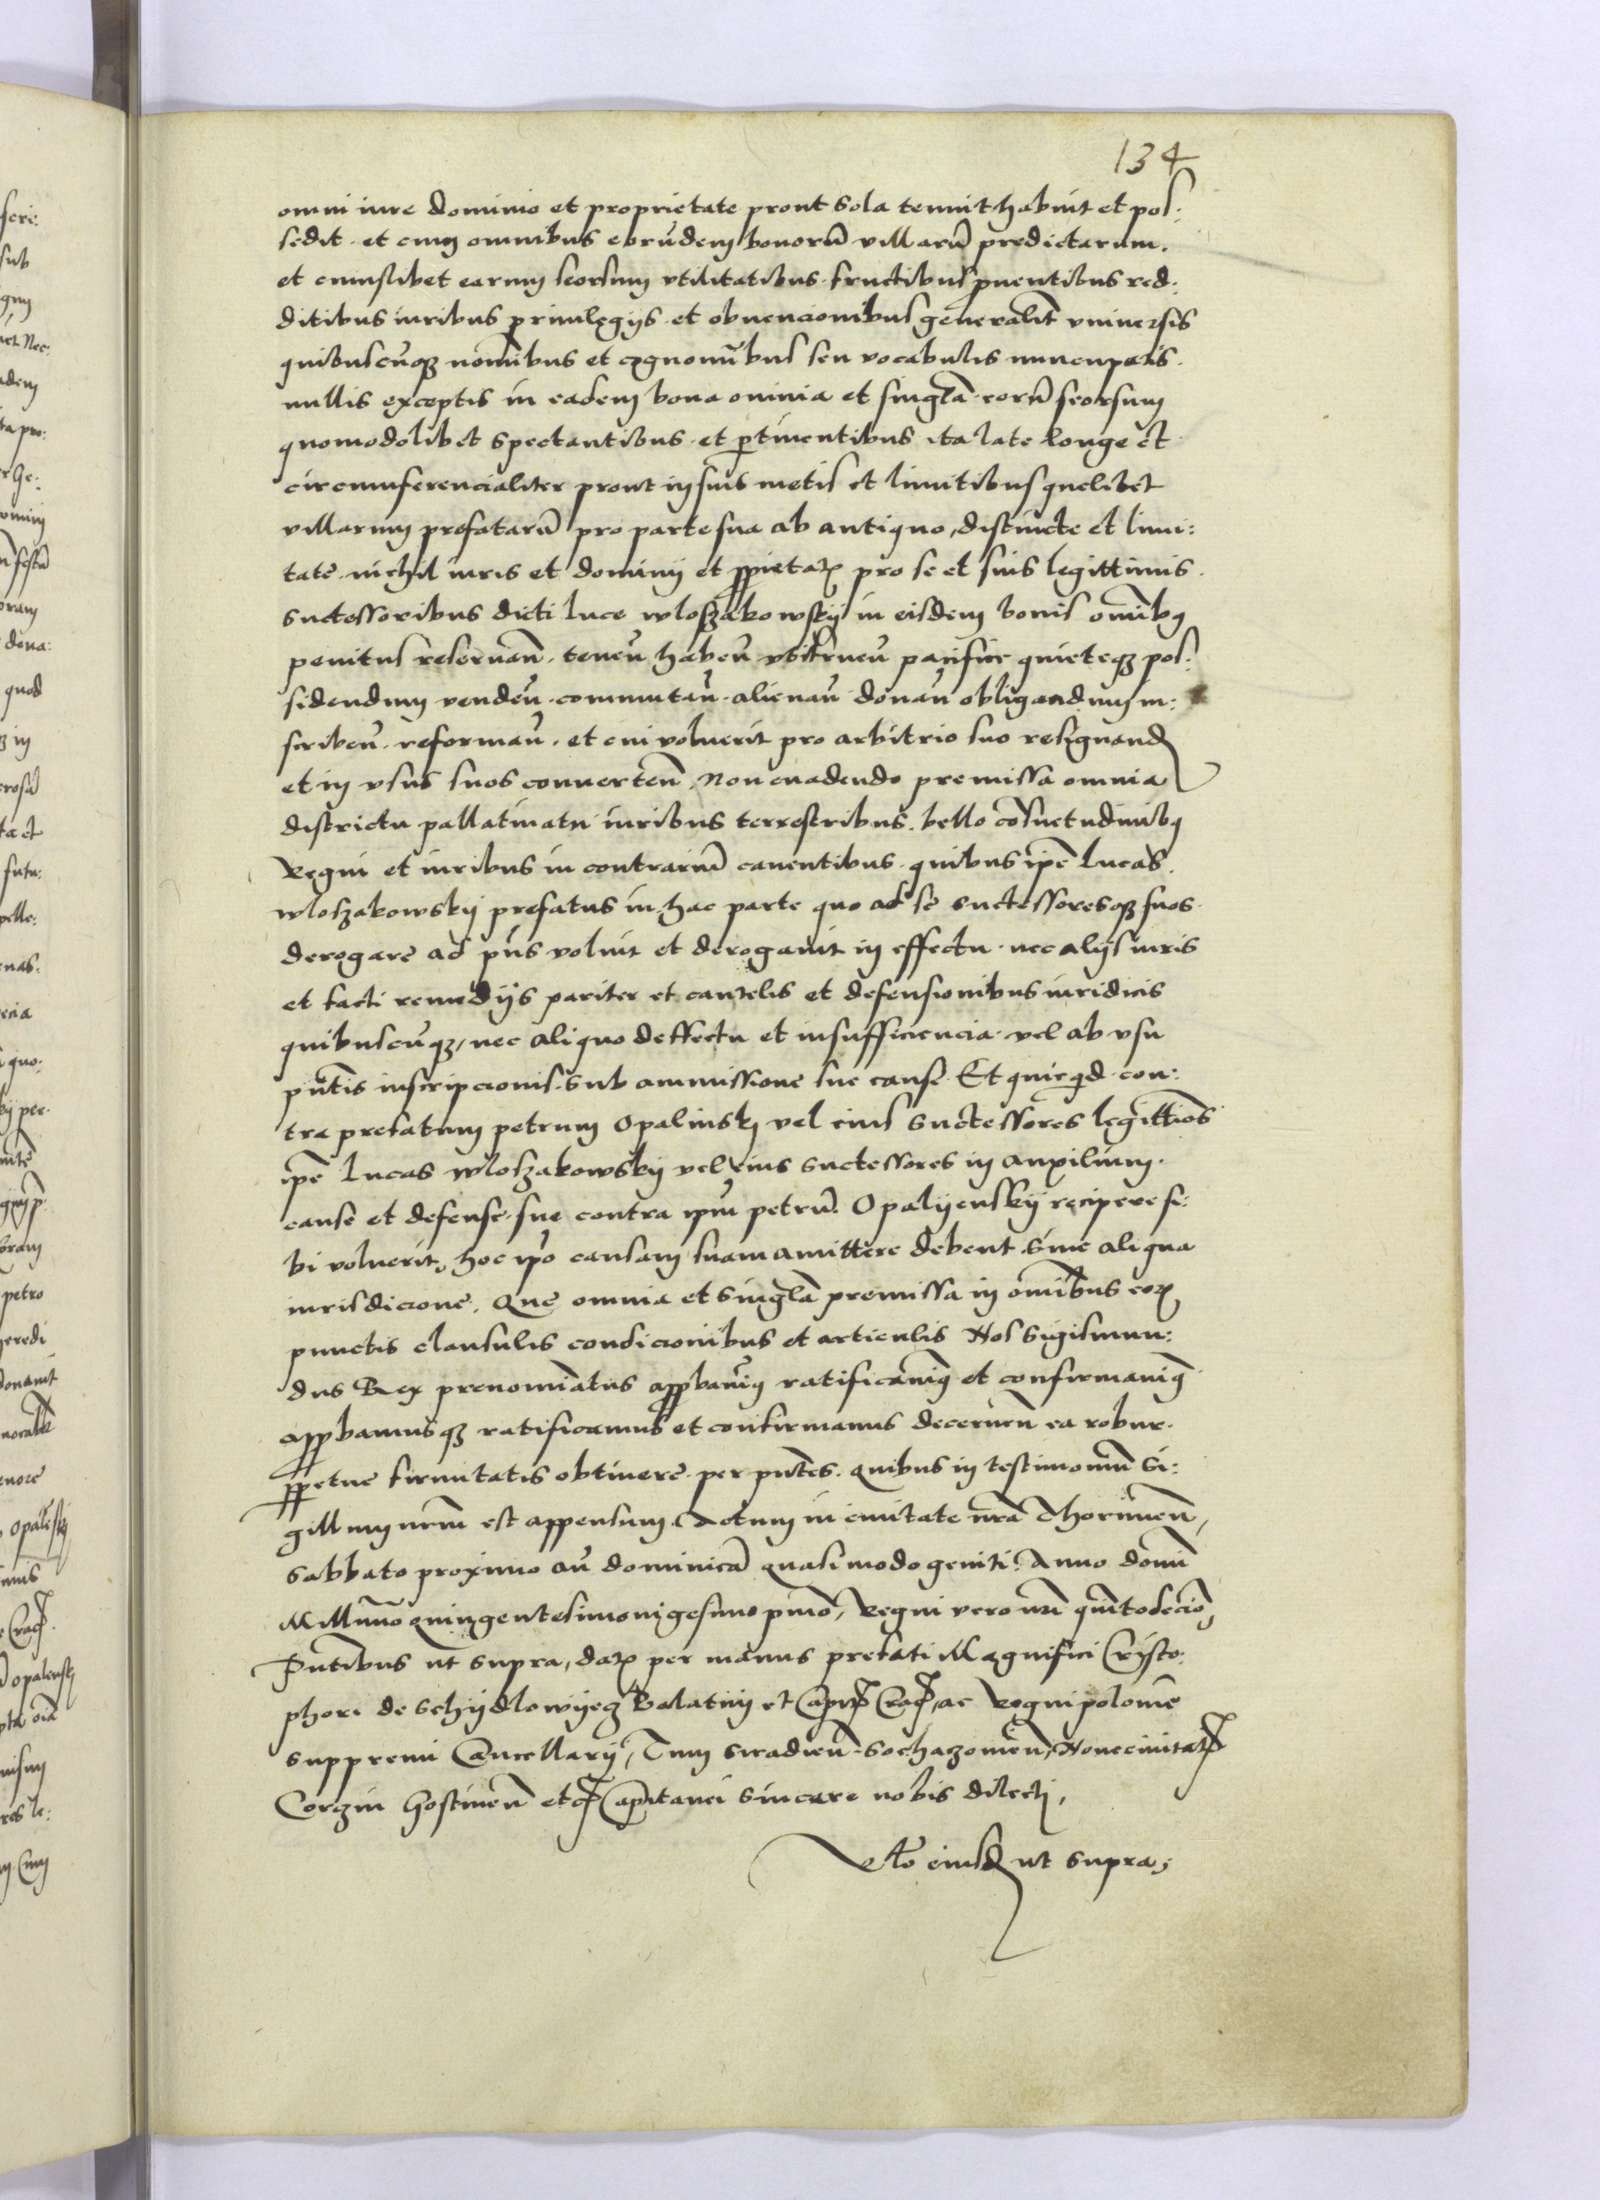 134
omni iure dominio et proprietate prout sola tenuit habuit et pos:
sedit. et cum omnibus eorūdem bonorū villarū predictarum.
et cuiuslibet earum seorsum vtilitatibus. fructibus puentibus red:
ditibus iuribus priuilegijs. et obuencionibus generalit̄ vniuersis
quibuscūqꝫ nom̄ibus et cognom̄ibus seu vocabulis nuncupatis.
nullis exceptis in eadem bona omnia et singl̄a eorū seorsum
quomodolibet spectantibus. et ꝑtinentibus ita late longe et
circumferencialiter prout in suis metis et limitibus quelibet
villarum prefatarū pro parte sua ab antiquo, distincte et limi:
tate. nichil iuris et dominij et ꝓprietatꝭ pro se et suis legittimis.
successoribus dicti luce wloszakowskij in eisdem bonis om̄ibꝯ
penitus reseruan̄. tenen̄ haben̄ vtifruen̄ pacifice quieteqꝫ pos:
sidendum venden̄. commutan̄. alienan̄ donan̄ obligandum in:
scriben̄. reforman̄. et cui voluerit pro arbitrio suo resignand
et in vsus suos conuerten̄. Non euadendo premissa omnia
districtu pallatinatu iuribus terrestribus. bello cōsuetudinibꝯ
Regni et iuribus in contrariū cauentibus. quibus ip̄e Lucas.
wloszakowskij prefatus in hac parte quo ad se successoresqꝫ suos.
derogare ad pn̄s voluit et derogauit in effectu. nec alijs iuris
et facti remedijs pariter et cautelis et defensionibus iuridicis
quibuscūqꝫ, nec aliquo deffectu et insufficiencia. vel ab vsu
pn̄tis inscripcionis. sub ammissione sue cause. Et quicqid. con:
tra prefatum petrum Opalinskj vel eius successores legittīos
ip̄e Lucas wloszakowskij vel eius successores in auxilium.
cause et defense. sue contra ipm̄ petrū Opalyenskij recipere si:
bi voluerit, hoc ip̄o causam suam amittere debent. sine aliqua
iurisdicione. Que omnia et singl̄a premissa in om̄ibus eoꝝ
punctis clausulis condicionibus et articulis Nos Sigismun:
dus Rex prenomīatus apꝓbauimꝯ ratificauimꝯ et confirmauimꝯ
apꝓbamusqꝫ ratificamus et confirmamus decernen̄ ea robur.
ꝑpetue firmitatis obtinere. per pn̄tes. quibus in testimoniū Si:
gillum nr̄m est appensum. Actum in ciuitate nr̄a Thorunien̄,
sabbato proximo an̄ dominicā quasimodo geniti. Anno domī
Millīmo quingentesimo vigesimo pīmo, Regni vero nr̄i quītodecīo,
Pn̄tibus ut supra, datꝭ per manus prefati Magnifici Cristo:
phori de Schydlowyecz Palatinj et Capitꝭ Cracꝭ, ac Regni polonie
suppremi Cancellarij, Tum siradien̄. Sochazowien̄, Noueciuitatꝭ
Corzin Gostinen̄ etcꝭ Capitanei sincere nobis dilectj,
Rō eiusd ut supra;